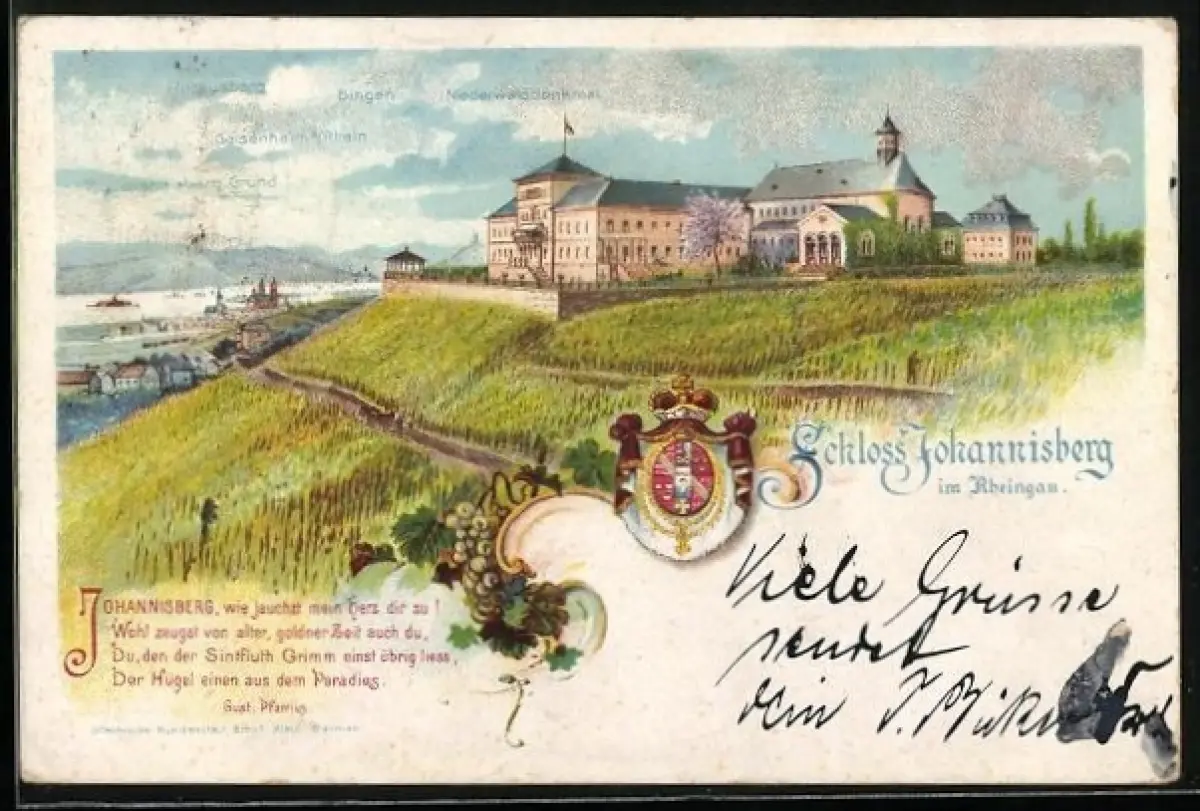 Bingen Niederwalddenkmal
Grund
Schloss Johannisberg
im Rheingau.
JOHANNISBERG, wie jauchst mein Herz dir zu!
Wohl zeugst von alter, goldner Zeit auch du,
Du, den der Sintfluth Grimm einst übrig liess,
Der Hügel einen aus dem Paradies.
Gust. Pfarrius
Viele Grüsse
sendet
dein